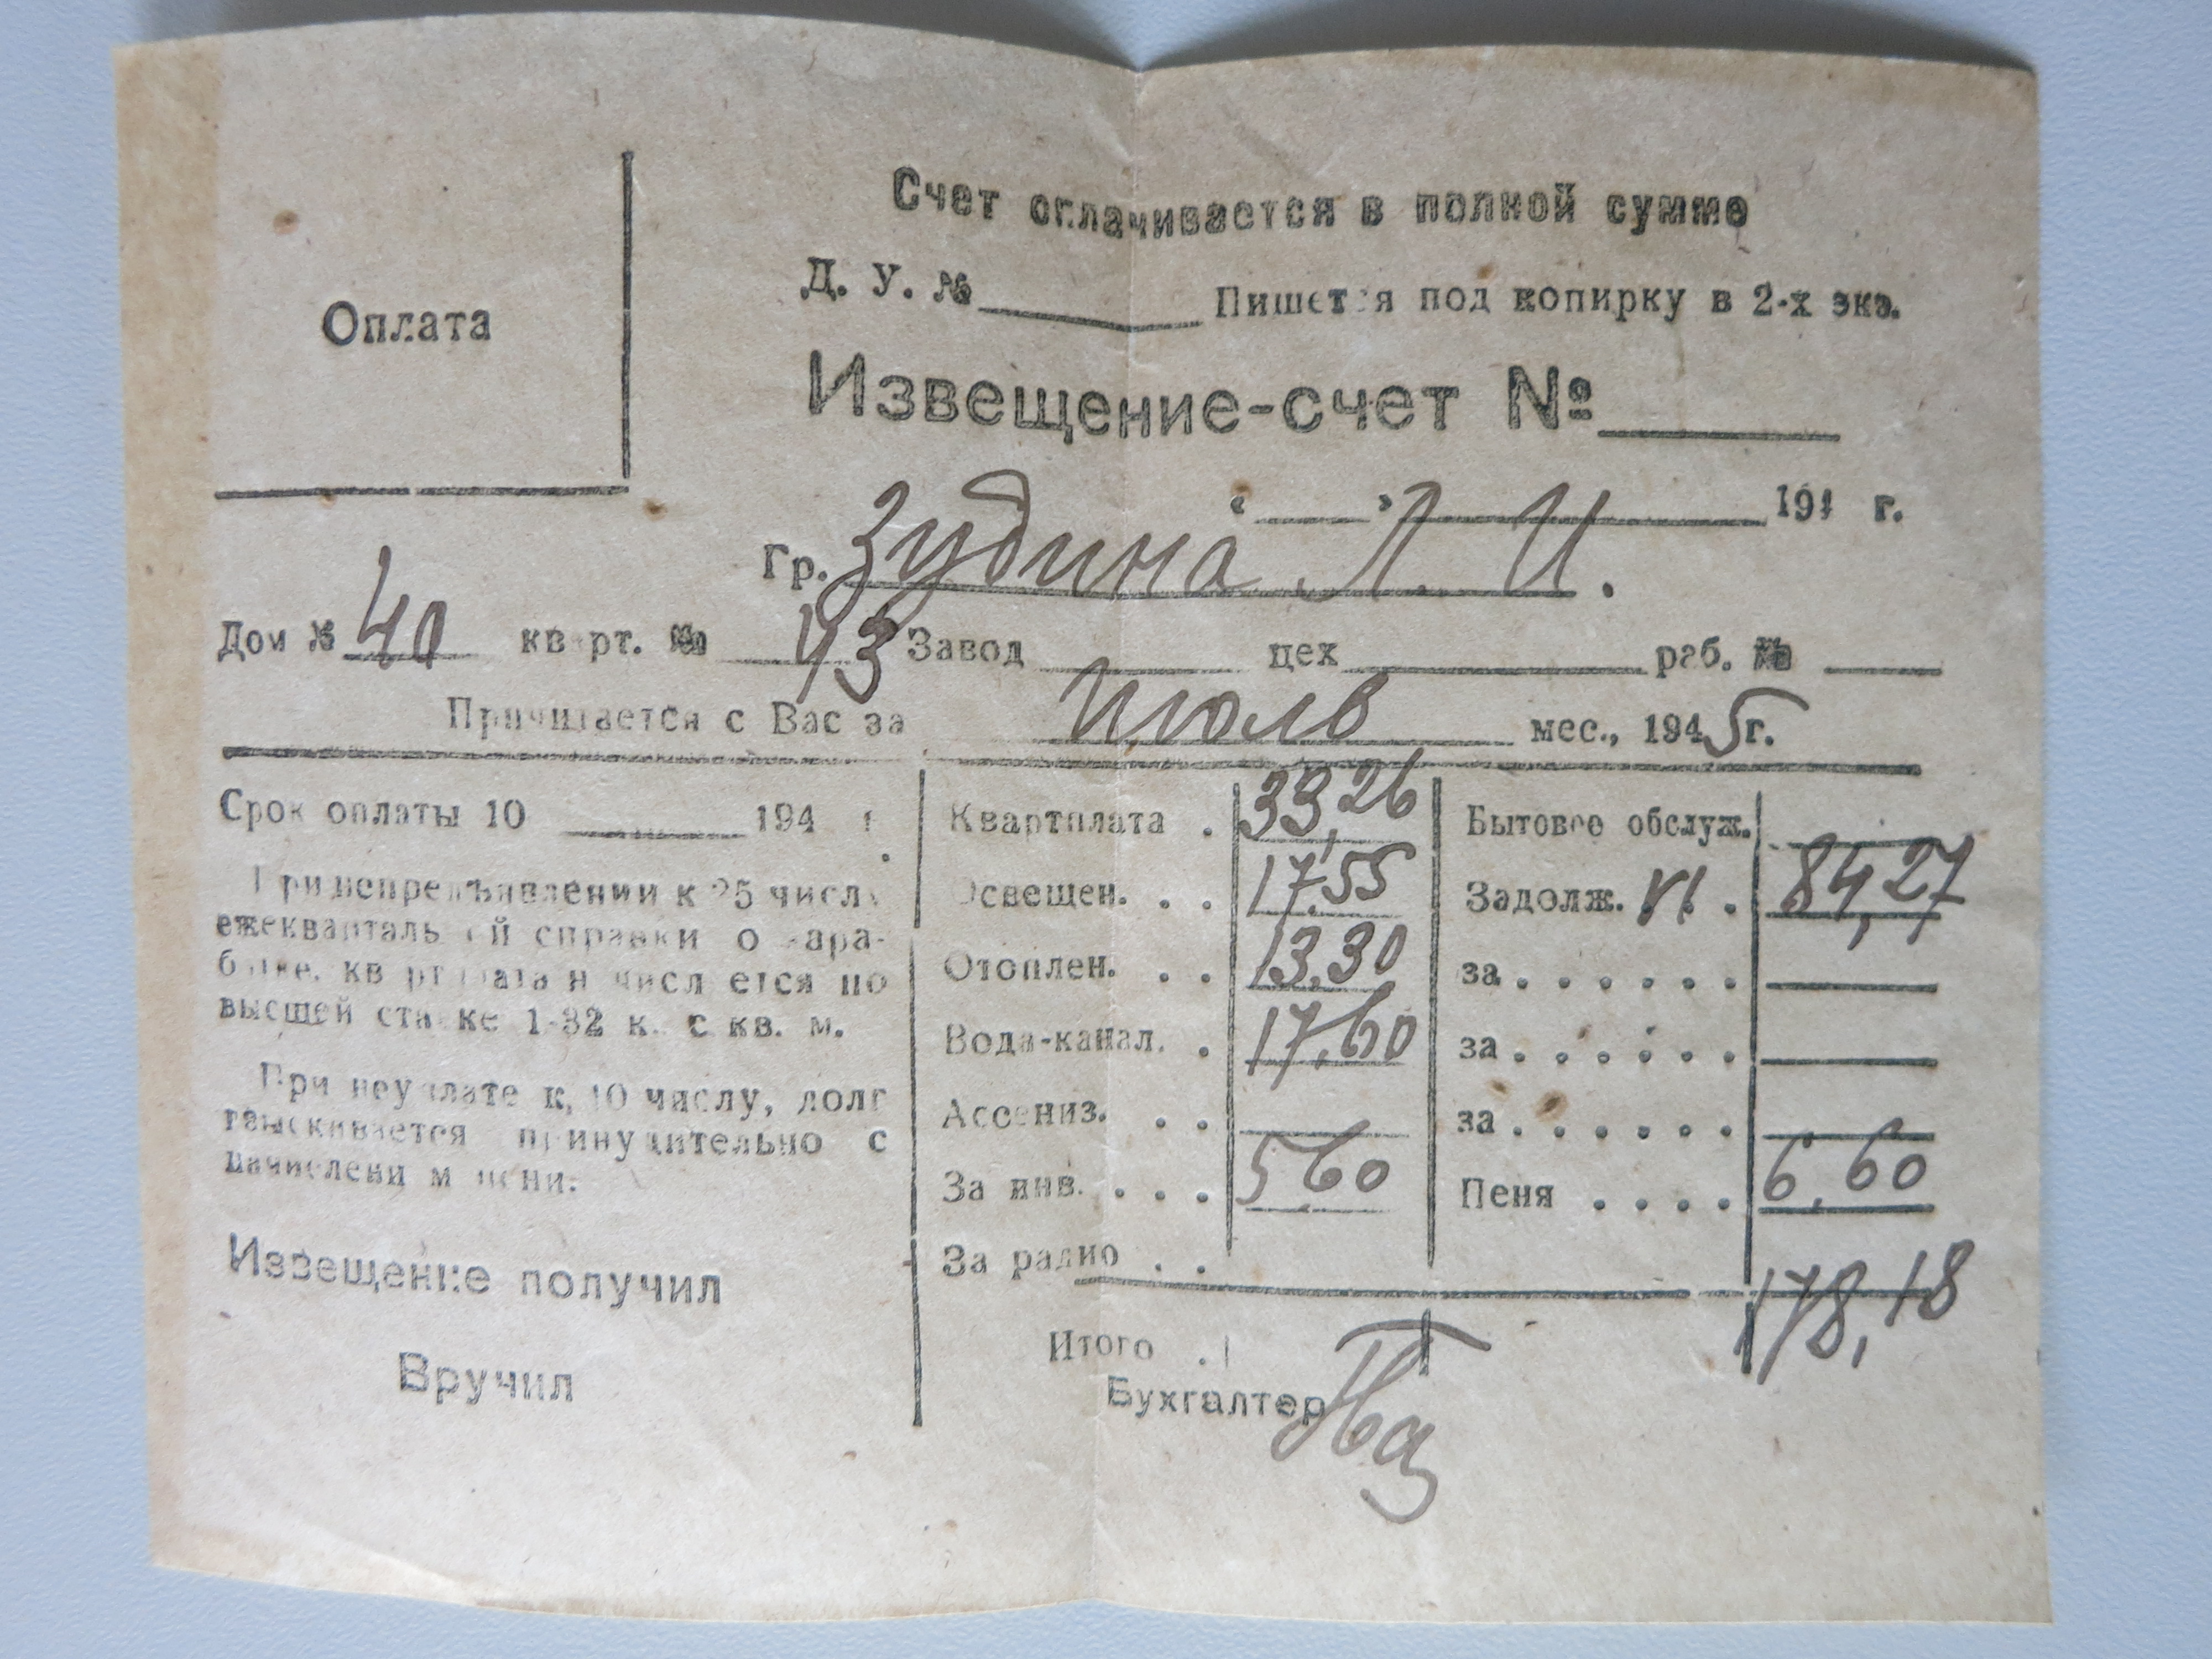 Счет оплачивается в полной сумме
Оплата
Д. У. № Пишется под копирку в 2-х экз.
Извещение-счет №
« » 194 г.
Гр. Зудина Л. И.
Дом № 40 кварт. № 43 Завод цех раб. №
Причитается с Вас за Июль мес., 1945 г.
Срок оплаты 10 194 г.
При непредъявлении к 25 числу
ежеквартальной справки о зара-
ботке, квартплата начисляется по
высшей ставке 1-32 к. с кв. м.
При неуплате к 10 числу, долг
взыскивается принудительно с
начислением пени.
Извещение получил
Вручил
Квартплата . 33,26
Освещен. . . 17,55
Отоплен. . . 13,30
Вода-канал. . 17,60
Ассениз. . .
За инв. . . . 5,60
За радио . .
Бытовое обслуж.
Задолж. VI. . 84,27
за . . . . . .
за . . . . . .
за . . . . . .
Пеня . . . . 6,60
Итого . 178,18
Бухгалтер